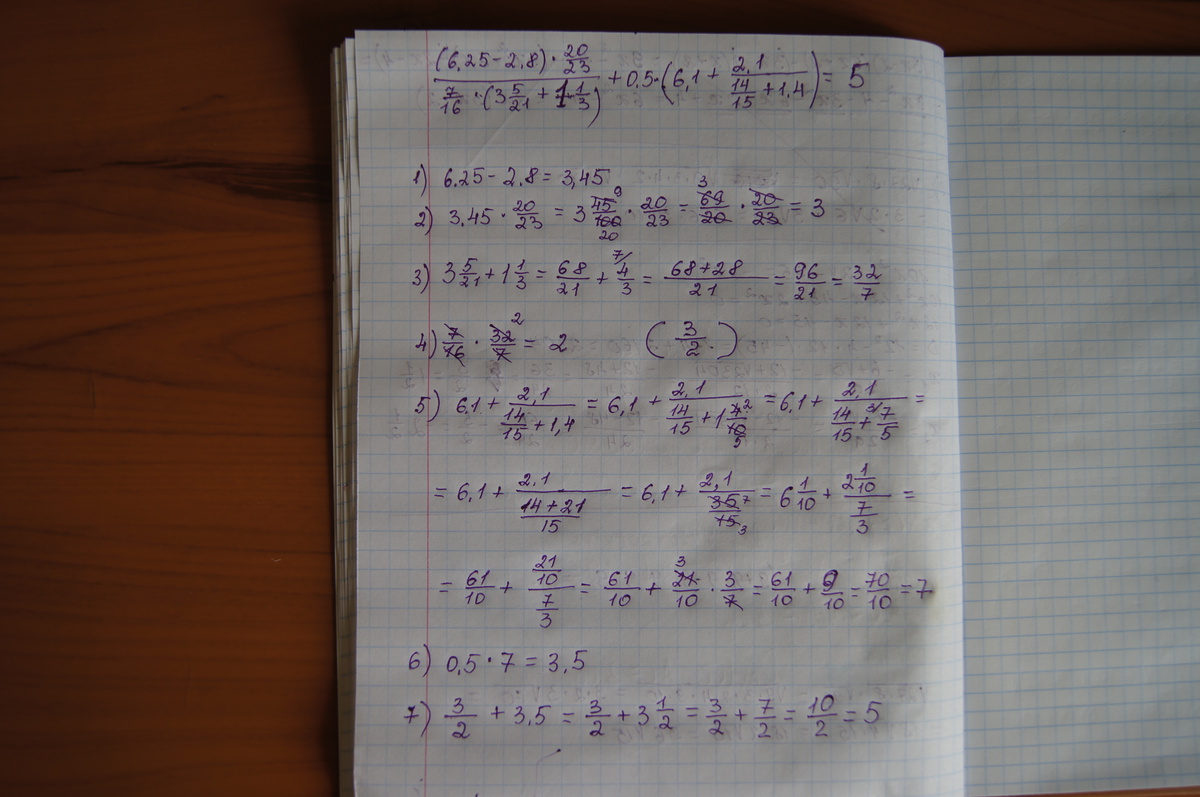 ((6,25-2,8)·20/23)/(7/16·(3 5/21+1 1/3))+0,5·(6,1+2,1/(14/15+1,4))=5
1) 6.25-2,8=3,45
2) 3,45·20/23=3 45/100 9/20·20/23=3 69/20·20/23=3
3) 3 5/21+1 1/3=68/21+7/4/3=(68+28)/21=96/21=32/7
4) 7/16·32/7 2=2 (3/2.)
5) 6,1+2,1/(14/15+1,4)=6,1+2,1/(14/15+1 4/10 2/5)=6,1+2,1/(14/15+3/7/5)=
=6,1+2,1/((14+21)/15)=6,1+2,1/(35/15 7/3)=6 1/10+(2 1/10)/(7/3)=
=61/10+(21/10)/(7/3)=61/10+3 21/10·3/7=61/10+9/10=70/10=7
6) 0,5·7=3,5
7) 3/2+3,5=3/2+3 1/2=3/2+7/2=10/2=5